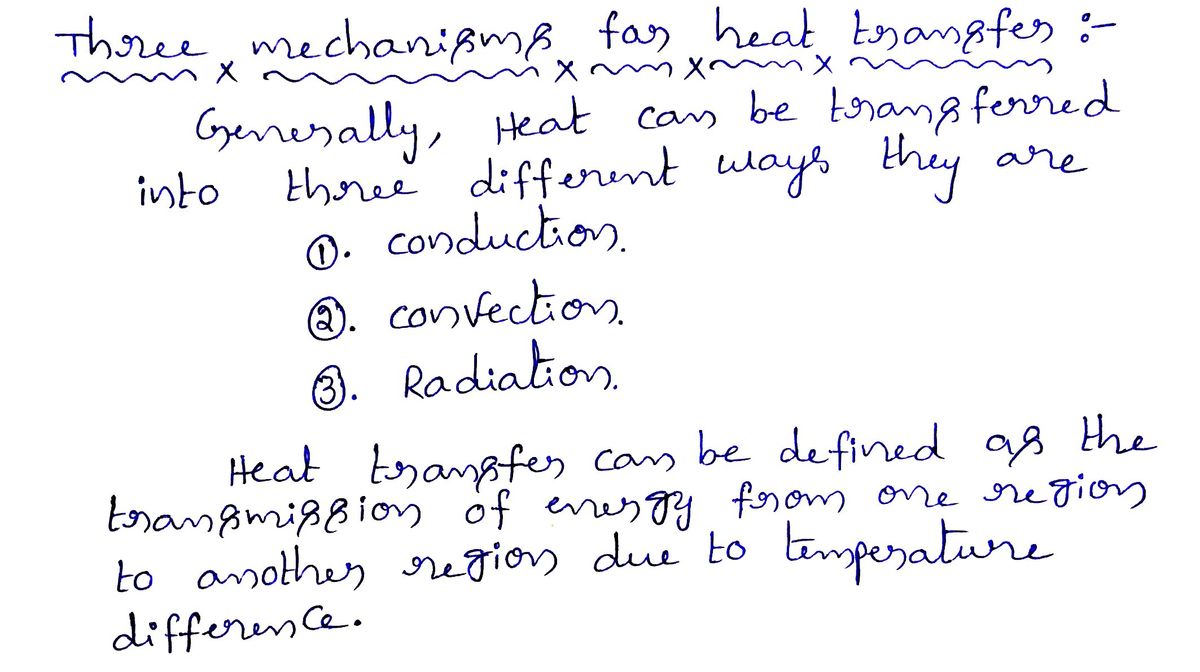 Three mechanisms for heat transfer :-
Generally, Heat can be transferred
into three different ways they are
①. conduction.
②. convection.
③. Radiation.
Heat transfer can be defined as the
transmission of energy from one region
to another region due to temperature
difference.